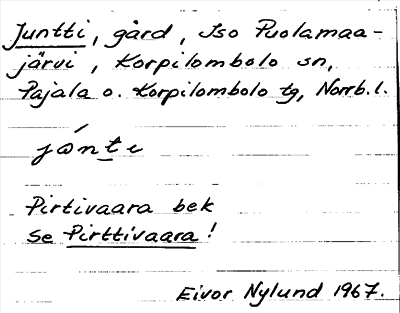 Juntti, gård, Iso Puolamaa-
järvi, Korpilombolo sn,
Pajala o. Korpilombolo tg, Norrb. l.
Pirtivaara bek
se Pirttivaara!
Eivor Nylund 1967.